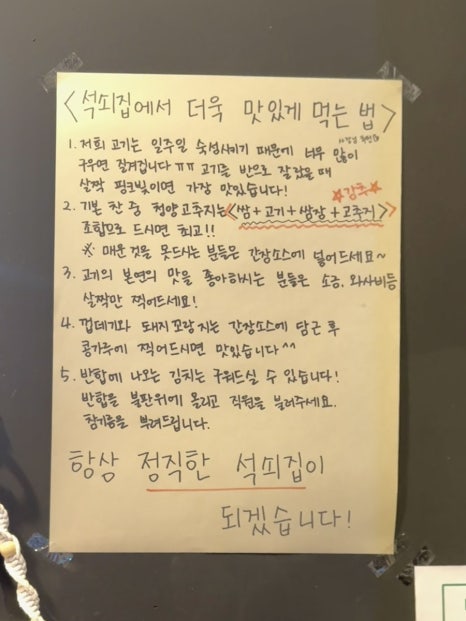 <석쇠집에서 더욱 맛있게 먹는 법>
1. 저희 고기는 일주일 숙성시키기 때문에 너무 많이
구우면 질겨집니다 ㅠㅠ 고기를 반으로 잘랐을때
살짝 핑크빛이면 가장 맛있습니다!
☆강추☆
2. 기본 찬 중 청양고추지는 <쌈+고기+쌈장+고추지>
조합으로 드시면 최고!!
※ 매운것을 못드시는 분들은 간장소스에 넣어드세요~
3. 고기의 본연의 맛을 좋아하시는 분들은 소금, 와사비등
살짝만 찍어드세요!
4. 껍데기와 돼지꼬랑지는 간장소스에 담근 후
콩가루에 찍어드시면 맛있습니다^^
5. 반합에 나오는 김치는 구워드실 수 있습니다!
반합을 불판위에 올리고 직원을 불러주세요.
참기름을 뿌려드립니다.
항상 정직한 석쇠집이
되겠습니다!